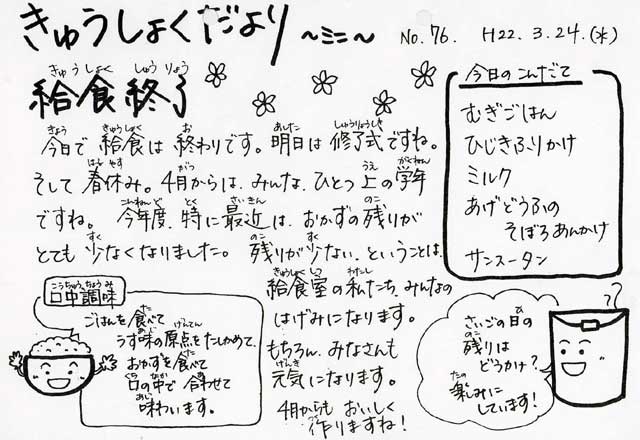 きゅうしょくだより ～ミニ～ No.76. H22.3.24.(水)
給食終了
今日で給食は終わりです。明日は修了式ですね。
そして春休み。4月からは、みんな、ひとつ上の学年
ですね。今年度、特に最近は、おかずの残りが
とても少なくなりました。残りが少ない、ということは、
給食室の私たち、みんなの
はげみになります。
もちろん、みなさんも
元気になります。
4月からも おいしく
作りますね!
今日のこんだて
むぎごはん
ひじきふりかけ
ミルク
あげどうふの
そぼろあんかけ
サンスータン
口中調味
ごはんを食べて
うす味の原点をたしかめて、
おかずを食べて
口の中で合わせて
味わいます。
さいごの日の
残りは
どうかけ?
楽しみに
しています!